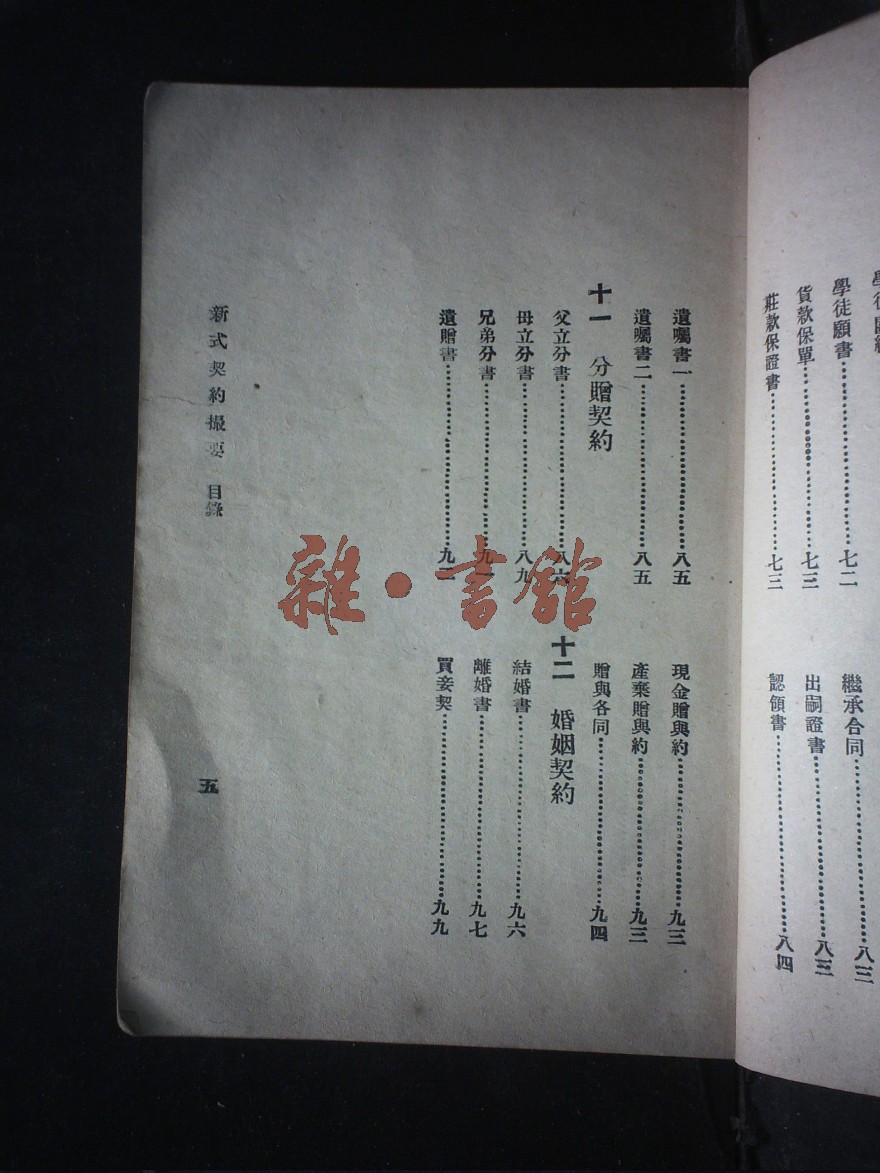 莊款保證書……七三
貨款保單……七三
學徒願書……七二
繼承合同……八三
出嗣證書……八三
認領書……八四
遺囑書一……八五
遺囑書二……八五
十一 分贈契約
父立分書……八六
母立分書……八九
兄弟分書……九一
遺贈書……九二
現金贈與約……九三
產棄贈與約……九三
贈與各同……九四
十二 婚姻契約
結婚書……九六
離婚書……九七
買妾契……九九
新式契約撮要 目錄
五
雜·書館